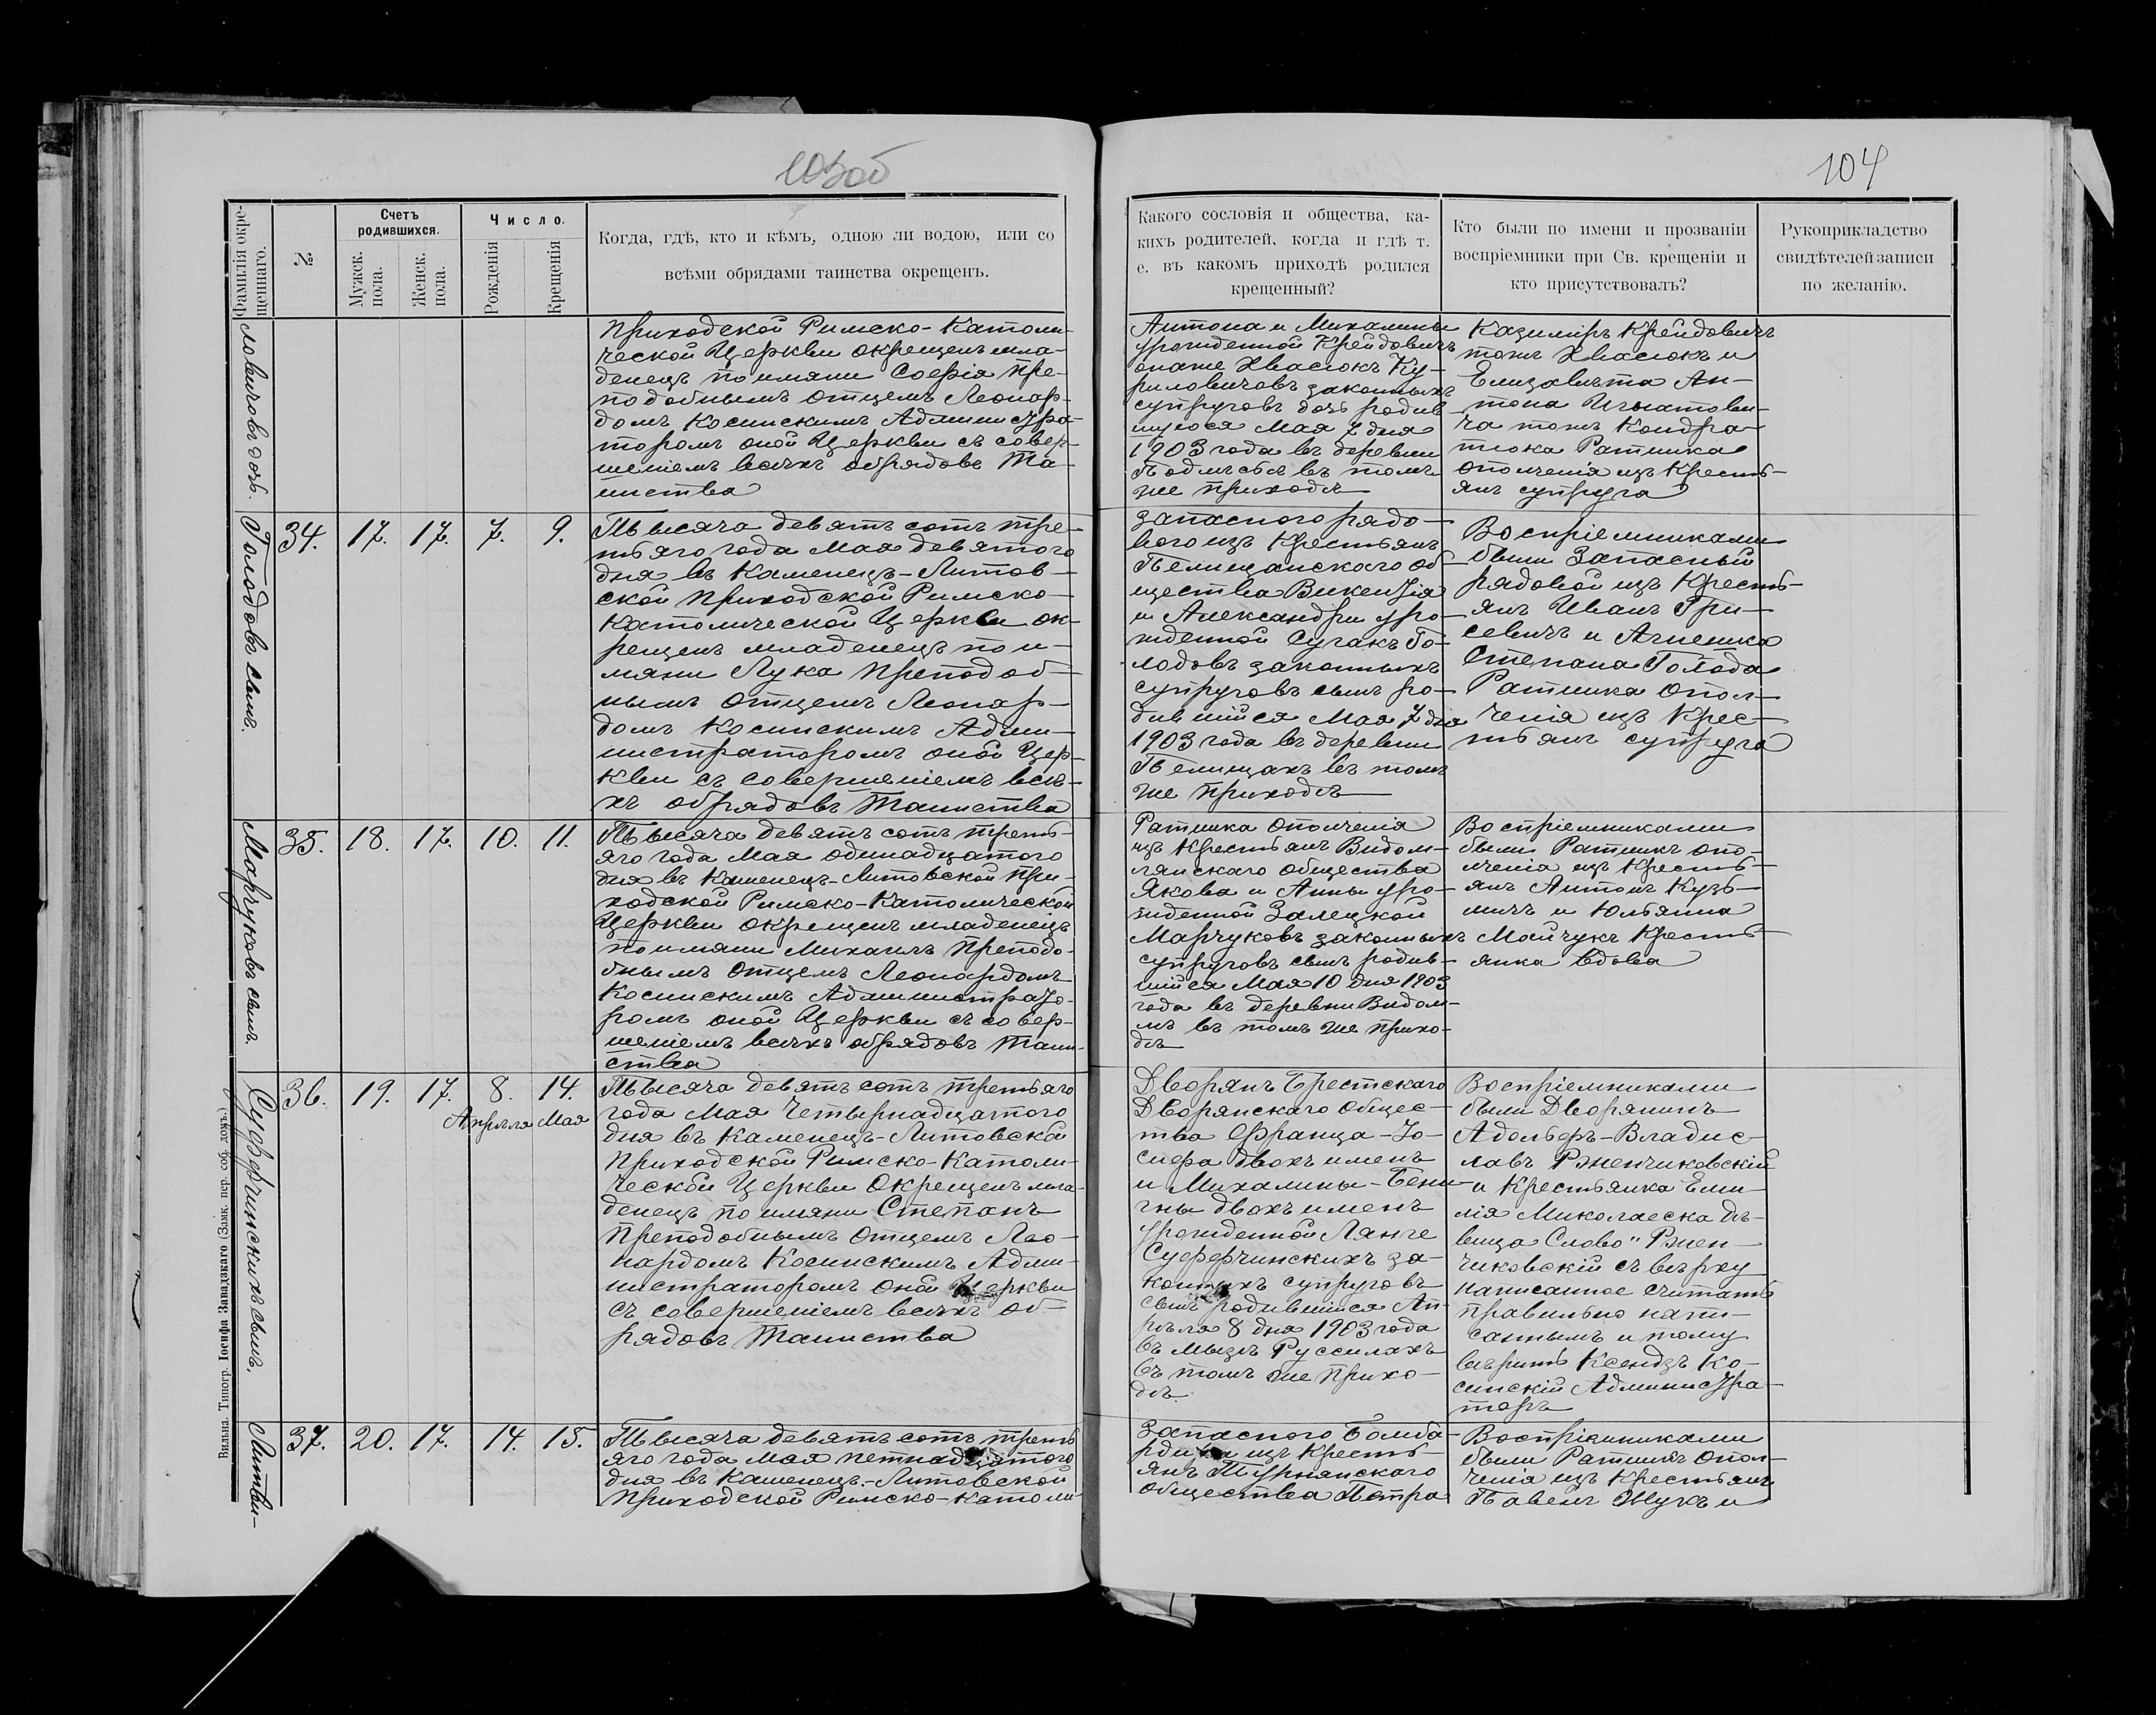 103об
104
Фамилія окре-
щеннаго.
№
Счетъ
родившихся.
Мужск.
пола.
Женск.
пола.
Число.
Рожденія
Крещенія
Когда, гдѣ, кто и кѣмъ, одною ли водою, или со
всѣми обрядами таинства окрещенъ.
Какого сословія и общества, ка-
кихъ родителей, когда и гдѣ т.
е. въ какомъ приходѣ родился
крещенный?
Кто были по имени и прозваніи
воспріемники при Св. крещеніи и
кто присутствовалъ?
Рукоприкладство
свидѣтелей записи
по желанію.
ловичовъ дочь.
Приходской Римско-Католи-
ческой Церкви окрещенъ мла-
денецъ по имяни Софія пре-
подобнымъ Отцемъ Леонар-
домъ Косинскимъ Администра-
торомъ оной Церкви съ совер-
шеніемъ всѣхъ обрядовъ Та-
инства
Антона и Михалины
урожденной Крейдовичъ
онаже Хвасюкъ Ку-
риловичовъ законныхъ
супруговъ дочь родив-
шуюся Мая 7 дня
1903 года въ деревни
Подлѣсьѣ въ томъ
же приходѣ
Казиміръ Крейдовичъ
тожъ Хвасюкъ и
Елизавѣта Ан-
тона Игнатови-
ча тожъ Кондра-
тюка Ратника
ополченія изъ Кресть-
янъ супруга
Голодовъ сынъ.
34.
17.
17.
7.
9.
Тысяча девятъ сотъ тре-
тьяго года Мая девятого
дня въ Каменецъ-Литов-
ской Приходской Римско-
Католической Церкви ок-
рещенъ младенецъ по и-
мяни Лука Преподоб-
нымъ Отцемъ Леонар-
домъ Косинскимъ Адми-
нистраторомъ оной Цер-
кви съ совершеніемъ всѣ-
хъ обрядовъ Таинства
Запасного рядо-
вого изъ Крестьянъ
Пелищанского об-
щества Викентія
и Александры уро-
жденной Сугакъ Го-
лодовъ законныхъ
супруговъ сынъ ро-
дившійся Мая 7 дня
1903 года въ деревни
Пелищахъ въ томъ
же приходѣ
Воспріемниками
были Запасный
рядовой изъ Кресть-
янъ Иванъ Гри-
севичъ и Агнешка
Степана Голода
Ратника Опол-
ченія изъ Крес-
тьянъ супруга
Марчуковъ сынъ.
35.
18.
17.
10.
11.
Тысяча девятъ сотъ треть-
яго года Мая одинадцатого
дня въ Каменецъ-Литовской При-
ходской Римско-Католической
Церкви окрещенъ младенецъ
по имяни Михаилъ Преподо-
бнымъ Отцемъ Леонардомъ
Косинскимъ Администрато-
ромъ оной Церкви съ совер-
шеніемъ всѣхъ обрядовъ Таин-
ства
Ратника Ополченія
изъ Крестьянъ Видом-
лянскаго общества
Якова и Анны уро-
жденной Залецкой
Марчуковъ законныхъ
супруговъ сынъ родив-
шійся Мая 10 дня 1903
года въ деревни Видом-
лѣ въ томъ же прихо-
дѣ
Воспріемниками
были Ратникъ опо-
лченія изъ Кресть-
янъ Антонъ Кузь-
мичъ и Юльянна
Майчукъ Кресть-
янка вдова
Суферчинскихъ сынъ.
36.
19.
17.
8.
14.
Апрѣля Мая
Тысяча девятъ сотъ третьяго
года Мая Четырнадцатого
дня въ Каменецъ-Литовской
Приходской Римско-Католи-
ческой Церкви Окрещенъ мла-
денецъ по имяни Степанъ
Преподобнымъ Отцемъ Лео-
нардомъ Косинскимъ Адми-
нистраторомъ оной Церкви
съ совершеніемъ всѣхъ об-
рядовъ Таинства
Дворянъ Брестскаго
Дворянскаго Общес-
тва Франца-Іо-
сифа двохъ именъ
и Михалины-Бени-
гны двохъ именъ
урожденной Лянге
Суферчинскихъ за-
конныхъ супруговъ
сынъ родившійся Ап-
рѣля 8 дня 1903 года
въ мызѣ Руссиляхъ
въ томъ же прихо-
дѣ.
Воспріемниками
были Дворянинъ
Адольфъ-Владис-
лавъ Рженчиковскій
и Крестьянка Еми-
лія Миколаеска дѣ-
вица Слово" Ржен-
чиковскій съ верху
написанное считать
правильно напи-
саннымъ и тому
вѣрить Ксендзъ Ко-
синскій Администра-
торъ
Литви-
37.
20.
17.
14.
15.
Тысяча девятъ сотъ треть
яго года Мая петнадцатого
дня въ Каменецъ-Литовской
Приходской Римско-Католи-
Запасного Бомба-
рдира изъ Кресть-
янъ Турнянского
общества Петра
Воспріемниками
были Ратникъ Опол-
ченія изъ Крестьянъ
Павелъ Жукъ и
Вильна. Типогр. Іосифа Завадзкаго (Замк. пер. соб. домъ.)